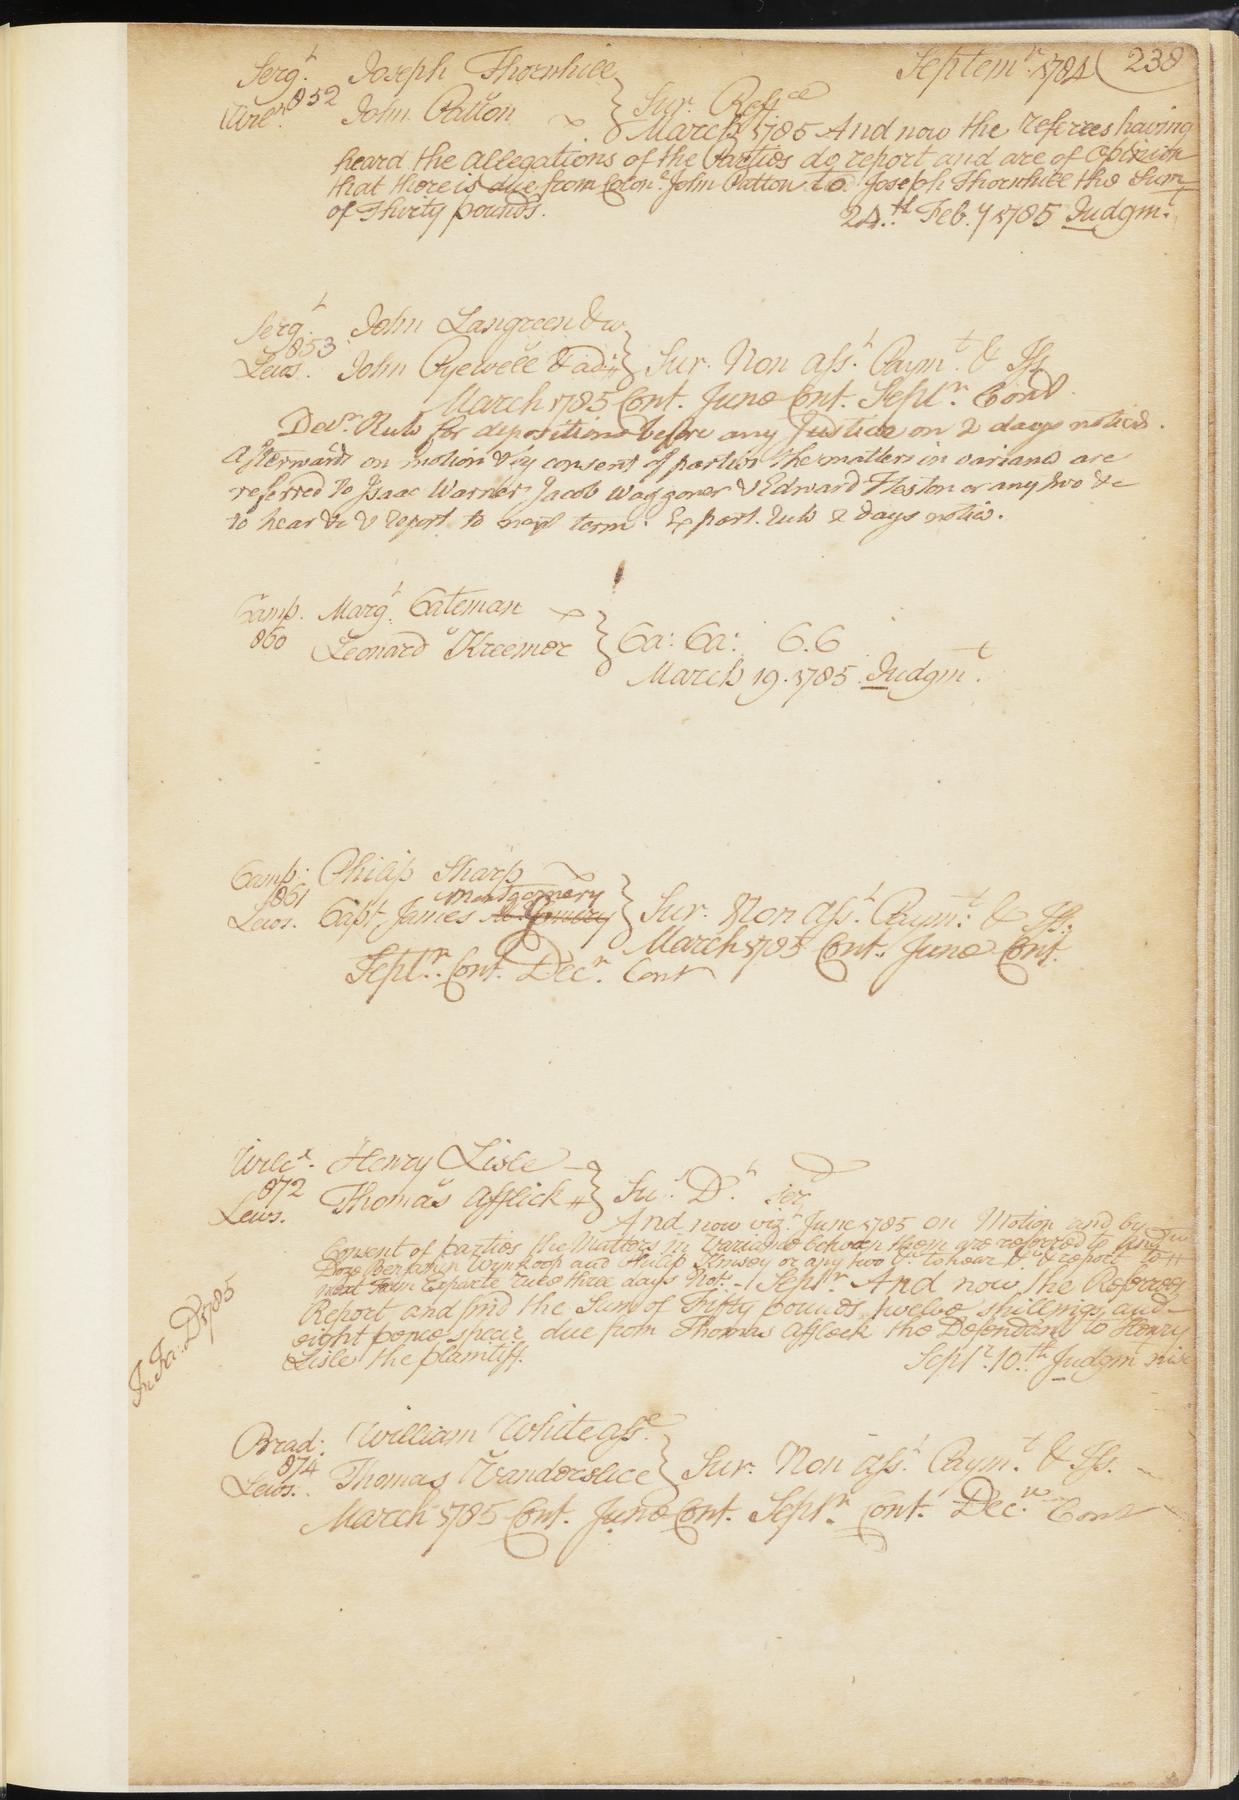 Septemr. 1784 (238
Sergt. Joseph Thornhill
852
John Patton } Sur. Refce
March 1785 And now the referees having
heard the allegations of the Parties do report and are of opinion
that there is due from Colone. John Patton to Joseph Thornhill the Sum
of Thirty pounds.
24.th Feb.y 1785 Judgmt.
Sergt. John Langreen & w
853
Lewis. John Ryewell & ad } Sur. Non asst. Paymt. & Iss
March 1785 Cont. June Cont. Septr. Cont.
Decr. Rule for depositions before any Justice on 2 days notice.
Afterwards on motion & by consent of parties the matters in variance are
referred to Isaac Warner Jacob Waggoner & Edward Heston or any two &c
to hear &c & report to next term. Ex part. rule 2 days notice.
Camp. Margt. Cateman
860 Leonard Kreemer } Ca: Ca: C.C
March 19. 1785. Judgmt.
Camp: Philip Sharp
861 Montgomery
Lewis. Capt. James } Sur. Non asst. Paymt. & Iss.
March 1785 Cont. June Cont.
Septr. Cont. Decr. Cont
Henry Lisle
872 Thomas Afflick } Su. D.
Lewis.
And now vizt. June 1785 on Motion and by
Consent of parties the Matters in Variance between them are referred to
Benjamin Wynkoop and Philip Kinsey or any two &c. to hear &c & report to
next Term Exparte rule three days Not. Septr. And now the Referees
Report and find the Sum of Fifty pounds, twelve shillings and
eight pence specie due from Thomas Affleck the Defendant to Henry
Lisle the plaintiff.
Septr. 10.th Judgm nisi
Fi. Fa. D 1785
Brad: William White asse.
874
Lewis. Thomas Vanderslice } Sur. Non asst. Paymt. & Iss.
March 1785 Cont. June Cont. Septr. Cont. Decr. Cont